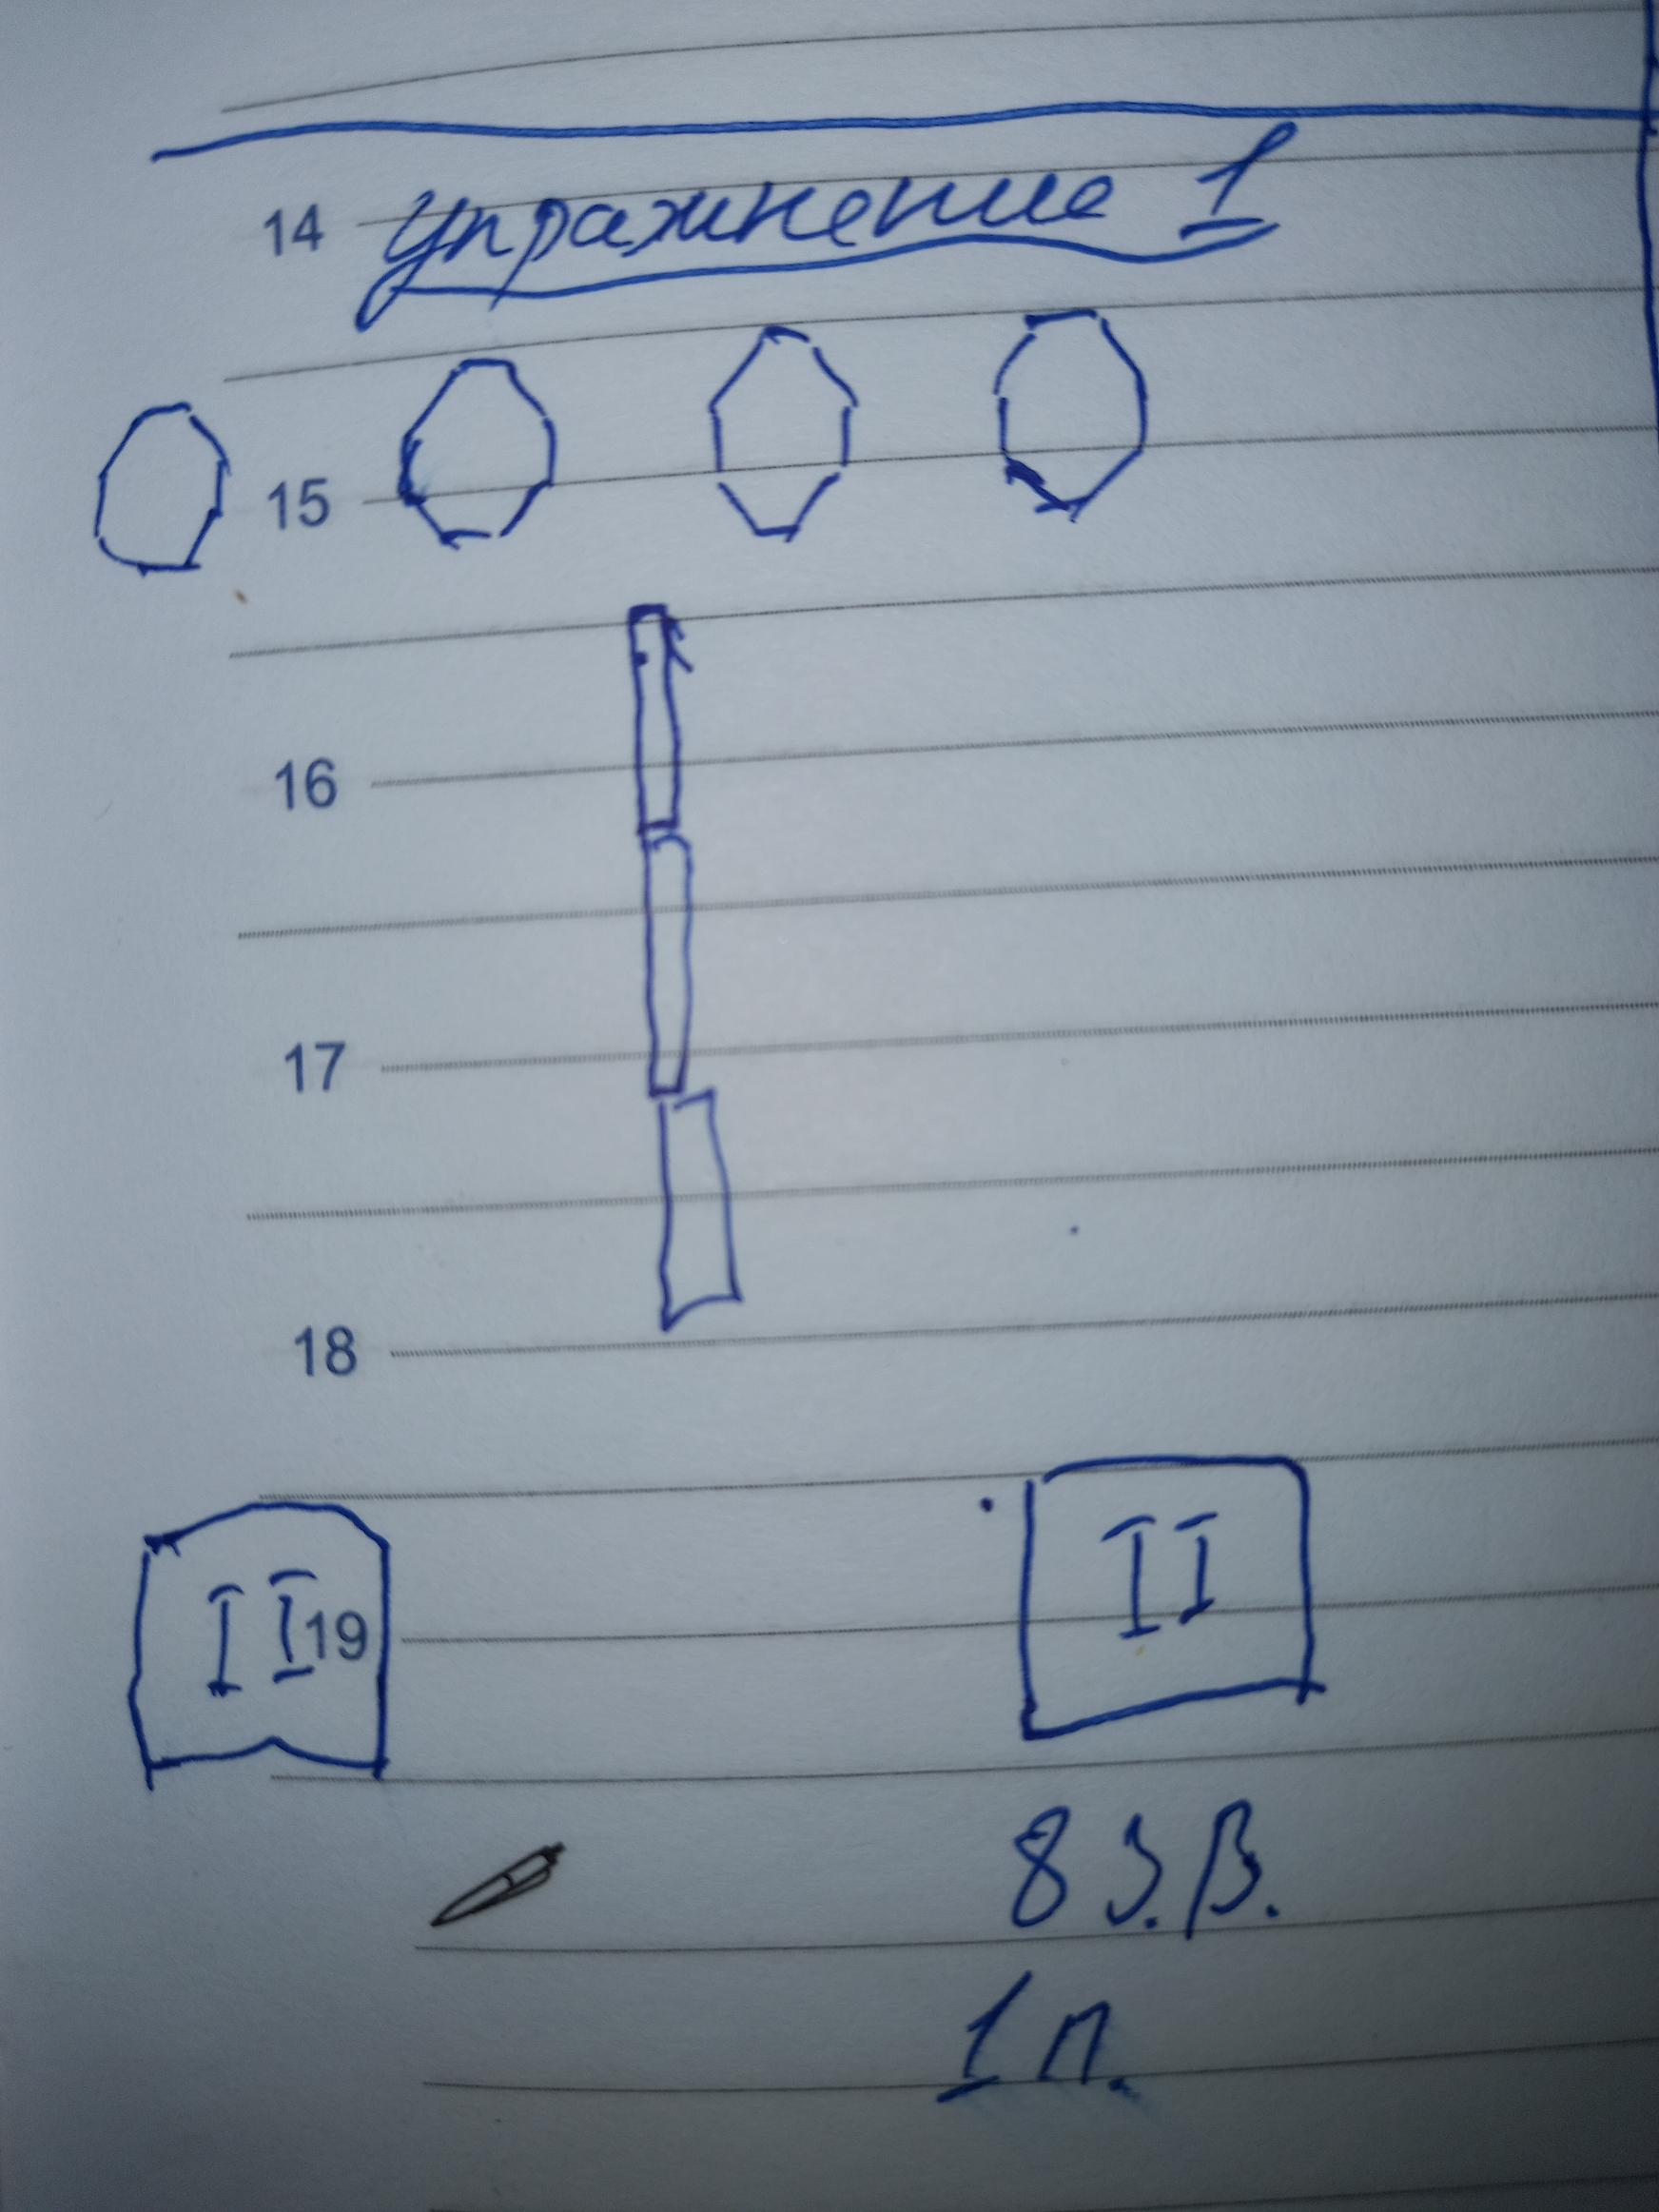 14 упражнение 1
15
16
17
18
II 19 II
8 З.В.
1 П.